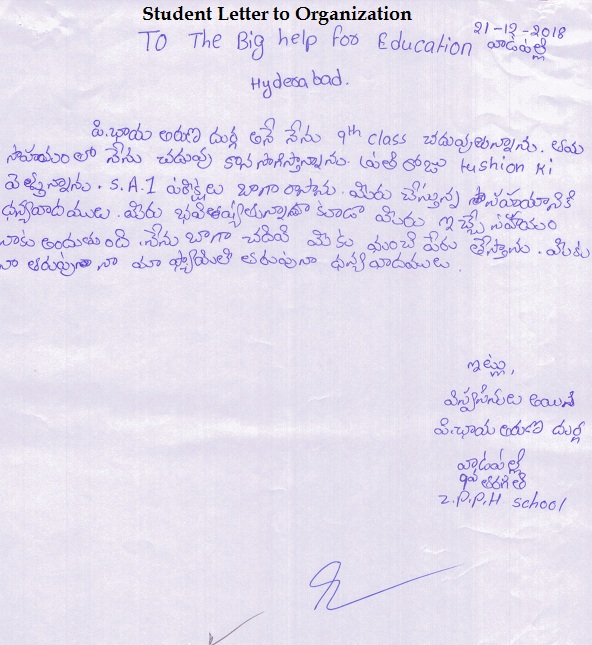 Student Letter to Organization
21-12-2018
TO The Big help for Education వాడపల్లి
Hyderabad.
పి.ఛాయ అరుణ దుర్గ అనే నేను 9th class చదువుతున్నాను. తమ
సాహయం లో నేను చదువు కొన సాగిస్తాన్నాను. ప్రతి రోజు tushion ki
వెళ్తున్నాను. S.A.1 పరీక్షలు బాగా రాస్తాను. మీరు చేస్తున్న సాహయానికి
ధన్యవాదములు. మీరు భవిత్యుతున్నాతా కూడా మీరు ఇచ్చే సహాయం
నాకు అందుతుంది. నేను బాగా చదివి మీకు మంచి పేరు తెస్తాను. మీకు
నా తరుపునా మా ఫ్యామిలీ తరుపునా ధన్యవాదములు.
ఇట్లు,
విన్నపనీయులు అయిన
పి.ఛాయ అరుణ దుర్గ
వాడపల్లి
9వ తరగతి
Z.P.P.H school